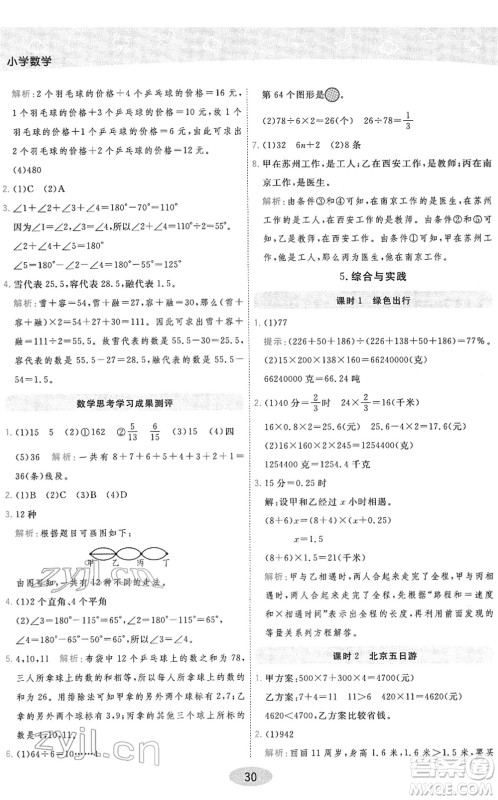 小学数学
解析:2 个羽毛球的价格+4 个乒乓球的价格=16 元,
1 个羽毛球的价格+2 个乒乓球的价格=8 元,
1 个羽毛球的价格+3 个乒乓球的价格=10 元,故 1
个乒乓球的价格+8=10 元,由此可以求出
1 个乒乓球的价格是 2 元,故可以求出 1 个羽毛
球的价格。
(4)480
2. (1)C (2)A
3. ∠1+∠2=∠3+∠4=180°-90°=90°
因为∠1=∠4,所以∠2=∠3
∠1+∠2+∠5=180°
∠3+∠4+∠5=180°
∠1+∠2+∠3=180°-55°=125°
4. 雪代表 25.5,容代表 28.5,融代表 1.5。
解析:雪+容=54,雪+融=27,容+融=30,(雪+
容+融)×2=54+27+30=111,雪+容+融=
111÷2=55.5,雪代表的数是 55.5-30=25.5,
容代表的数是 55.5-27=28.5,融代表的数是
55.5-54=1.5。
数学思考学习成果测评
1. (1)15 5 (2)①162 ②5/13 6/15 (3)15 (4)四
(5)36 解析:一共有 8+7+6+5+4+3+2+1=
36(条)线段。
2. (1)B (2)D (3)C (4)B
3. 12 种
解析:根据题目可画图如下:
甲 乙 丙 丁
由图发现,一共有 12 种不同的走法。
4. (1)2 个直角,4 个平角
(2)∠1=180°-115°=65°,∠2=180°-65°=
115°,∠3=180°-115°=65°
5. 4,10,11 解析:布袋中 12 个乒乓球上的数之和为 78,
三人所拿球上的数之和相等,故每人所拿的 4 个
球上的数之和为 78÷3=26,由此可得甲拿的
另外两个球上标有 10,11,乙拿的另外两个球上
标有 4,10,丙拿的另外三个球上标有 4,10,11。
6. (1)64÷6=10(组)……4(个)
第 64 个图形是
(2)78÷6×2=26(个) 26÷78=1/3
7. (1)32 6n+2 (2)8 条
8. 甲在苏州工作,是工人;乙在西安工作,是教师;丙在
南京工作,是医生。
解析:由条件③和④可知,在南京工作的是医生,
在苏州工作的是工人,在西安工作的是教师。由
条件①和②可知,乙在西安工作,是教师;丙在南
京工作,是医生;甲在苏州工作,是工人。
5. 综合与实践
课时 1 绿色出行
1. (1)77
提示:(226+50+186)÷(226+138+50+186)=77%。
(2)15×200×138×160=66240000(克)
66240000 克=66.24 吨
2. (1)40 分=2/3时 24×2/3=16(千米)
16×0.8×2=25.6(千米)
25.6×2×5×4900=1254400(克)
1254400 克=1254.4 千克
(2)16×2×5=160(千米)
3. 15 分=0.25 时
解:设甲和乙经过 x 小时相遇。
(8+6)x=(8+6)×0.25×3
x=0.75
(8+6)×0.25=3.5(千米)
解析:甲与乙相遇时,两人合起来走完了全程,甲
与丙相遇时,两人合起来也走完了全程,根据全
程的长度相等,再利用前面发现的
等量关系列方程解答。
课时 2 北京五日游
1. 甲方案:7×500+4×300=4700(元)
乙方案:7+4=11(人) 11×420=4620(元)
4620<4700,乙方案比较省钱。
2. (1)942
解析:丽丽 11 周岁,身高 1.6 米,高于 1.5 米,要买
30
zyjl.cn
答案圈
MXQE.COM